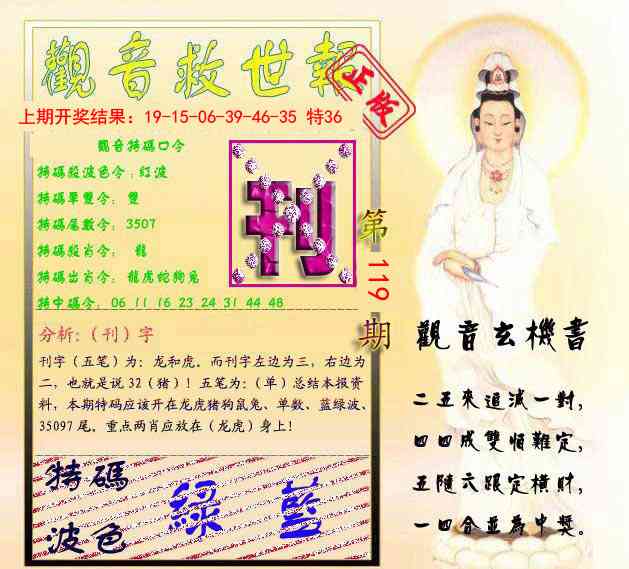 觀音救世報
正版
上期开奖结果：19-15-06-39-46-35 特36
觀音特碼口令
特碼殺波色令：紅波
特碼單雙令： 雙
特碼尾數令：3507
特碼殺肖令： 龍
特碼出肖令： 龍虎蛇狗兔
特中碼令：06 11 16 23 24 31 44 48
刊
第119期
分析：（刊）字
刊字（五笔）为：龙和虎。而刊字左边为三，右边为
二，也就是说32（猪）！五笔为：（单）总结本报资
料，本期特码应该开在龙虎猪狗鼠兔、单数、蓝绿波、
35097尾。重点两肖应放在（龙虎）身上！
特碼
波色
綠 藍
觀音玄機書
二五來追減一對，
四四成雙恒難定，
五隨六跟定橫財，
一四合並為中獎。